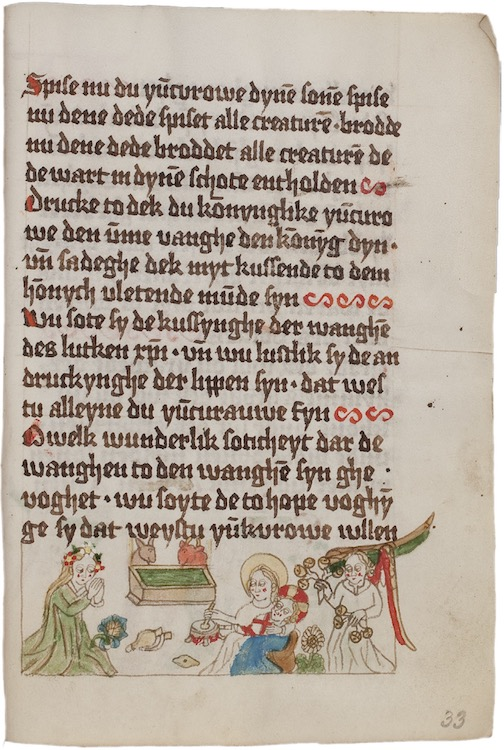 Spise nu du yūcurowe dynē sonē spise
nu dene dede spiset alle creaturē · brodde
nu dene dede broddet alle creaturē de
de wart in dynē schote entholden
Drucke to dek du konynglike yūcuro
we den vm̄e vanghe den konīg dyn ·
vn̄ sadeghe dek myt kussende to dem
honych vletende mūde syn
Wu sote sy de kussynghe der wanghē
des lutken xp̄i · vn̄ wu lustlik sy de an
druckynghe der lippen syn · dat wes
tu alleyne du yūcurauwe fyn
O welk wunderlik soticheyt dar de
wanghen to den wanghē syn ghe
voghet · wu soyte de to hope voghȳ
ge sy dat weystu yūkvrowe wllen
33